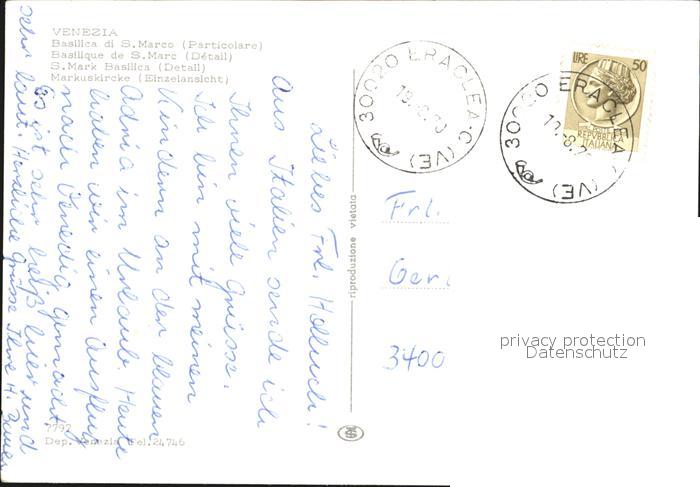 VENEZIA
Basilica di S. Marco (Particolare)
Basilique de S. Marc (Détail)
S. Mark Basilica (Detail)
Markuskircke (Einzelansicht)
Liebes Frl.
Aus Italien sende ich
Ihnen viele Grüsse.
Ich bin mit meinen
Kindern an der blauen
Adria im Urlaub. Heute
haben wir einen Ausflug
nach Venedig gemacht.
Es ist sehr heiß hier und
sehr laut. Herzliche Grüsse Ihre H.
7792
Dep. Venezia Tel. 24.746
riproduzione vietata
30020 ERACLEA - C (VE)
30020 ERACLEA - C (VE)
LIRE 50
REPVBBLICA
ITALIANA
Frl.
Ger
3400
privacy protection
Datenschutz